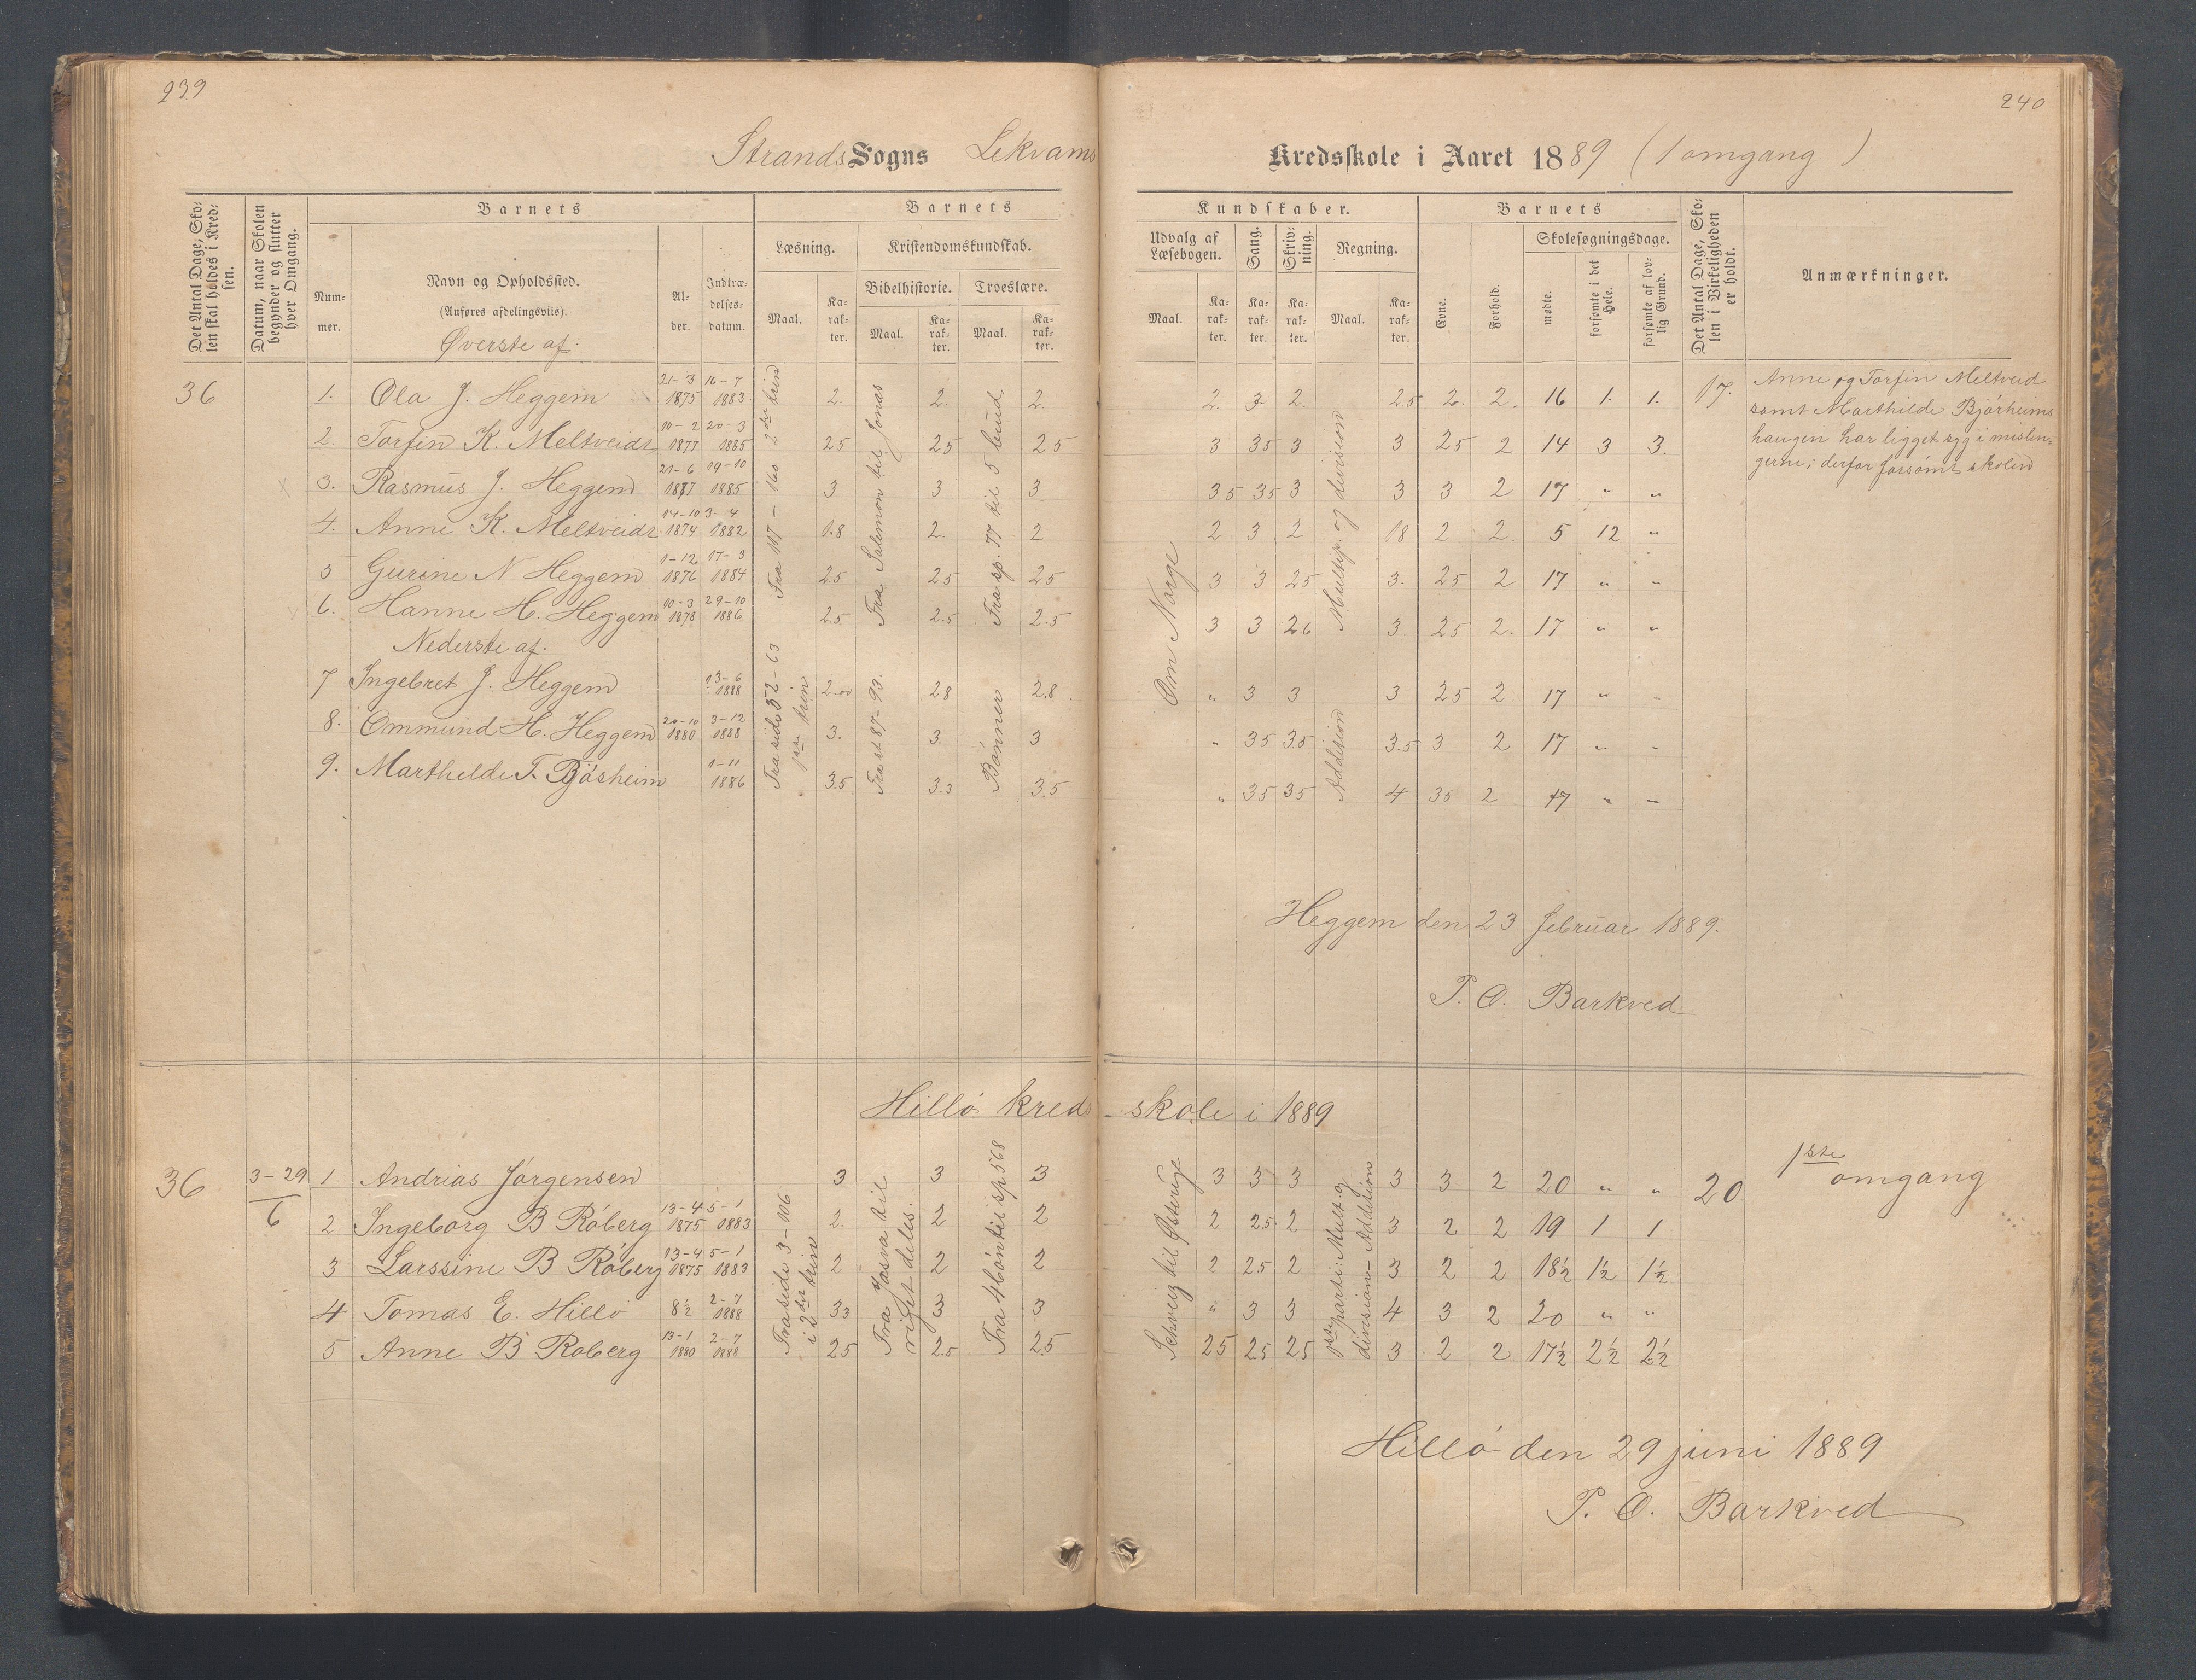 239
240
Strands Sogns Lekvams Kredsskole i Aaret 1889 (1 omgang)
Det Antal Dage, Skolen skal holdes i Kredsen.
Datum, naar Skolen begynder og slutter hver Omgang.
Barnets
Barnets
Kundskaber.
Barnets
Nummer.
Navn og Opholdssted.
(Anføres afdelingsviis).
Øverste af.
Alder.
Indtrædelsesdatum.
Læsning.
Kristendomskundskab.
Bibelhistorie.
Troeslære.
Maal.
Karakter.
Maal.
Karakter.
Maal.
Karakter.
Udvalg af Læsebogen.
Sang.
Skrivning.
Regning.
Maal.
Karakter.
Karakter.
Karakter.
Maal.
Karakter.
Evne.
Forhold.
Skolesøgningsdage.
mødte.
forsømte i det Hele.
forsømte af lovlig Grund.
Det Antal Dage, Skolen i Virkeligheden er holdt.
Anmærkninger.
36 1. Ola J. Heggem 21-3 1875 16-7 1883 2. 2. 2. 2. 3 2. 2.5 2. 2. 16 1. 1. 17.
2. Torfin K. Meltveidt 10-2 1877 20-3 1885 25 25 25 3 35 3 3 25 2 14 3 3.
3. Rasmus J. Heggem 21-6 1877 19-10 1885 3 3 3 35 35 3 3 3 2 17 " "
4. Anne K. Meltveidt 14-10 1874 3-4 1882 1.8 2. 2 2 3 2 18 2 2. 5 12 "
5 Gurine N Heggem 1-12 1876 17-3 1884 25 25 25 3 3 25 3. 25 2 17 " "
6. Hanne H. Heggem 10-3 1878 29-10 1886 2.5 2.5 2.5 3 3 26 3. 25 2. 17 " "
Nederste af.
7 Ingebret J. Heggem 13-6 1888 2.00 28 2.8 " 3 3 3 25 2 17 " "
8. Ommund H. Heggem 20-10 1880 3-12 1888 3. 3. 3 " 35 3.5 3.5 3 2 17 " "
9. Marthelde T. Bjósheim 1-11 1886 3.5 3.3 3.5 " 35 35 4 35 2 17 " "
Fra 107 - 160 2det trin
Fra Salemon til Jonas
Fra sp. 77 til 5 bud
Fra side 52-63
1ste trin
Fra st 87-93.
Bónner
Om Norge
Multip. og division
Addision
Anne og Torfin Meltveid
samt Marthilde Bjórheims
haugen har ligget syg i mislin-
gerne; derfor forsómt skolen
Heggem den 23 februar 1889.
P. O. Barkved
Hilló kreds-skole i 1889
36 3-29/6 1 Andrias Jørgensen 3 3 3 3 3 3 3 3 2 20 " " 20
2 Ingeborg B Róberg 13-4 1875 5-1 1883 2. 2 2 2 2.5 2 3 2 2 19 1 1
3 Larssine B Róberg 13-4 1875 5-1 1883 2 2 2 2 25 2 3 2 2 18½ 1½ 1½
4 Tomas E. Hilló 8½ 2-7 1888 33 3 3 " 3 3 4 3 2 20 " "
5 Anne B Roberg 13-1 1880 2-7 1888 25 2.5 2.5 25 25 25 3 2 2 17½ 2½ 2½
Fra side 3-106
i 2det trin
Fra Josva til
riget deles.
Fra 4 bón til sp 568
Schveig til Østerige
1ste parti: Mult. og
division - Addition
1ste omgang
Hilló den 29 juni 1889
P. O. Barkved